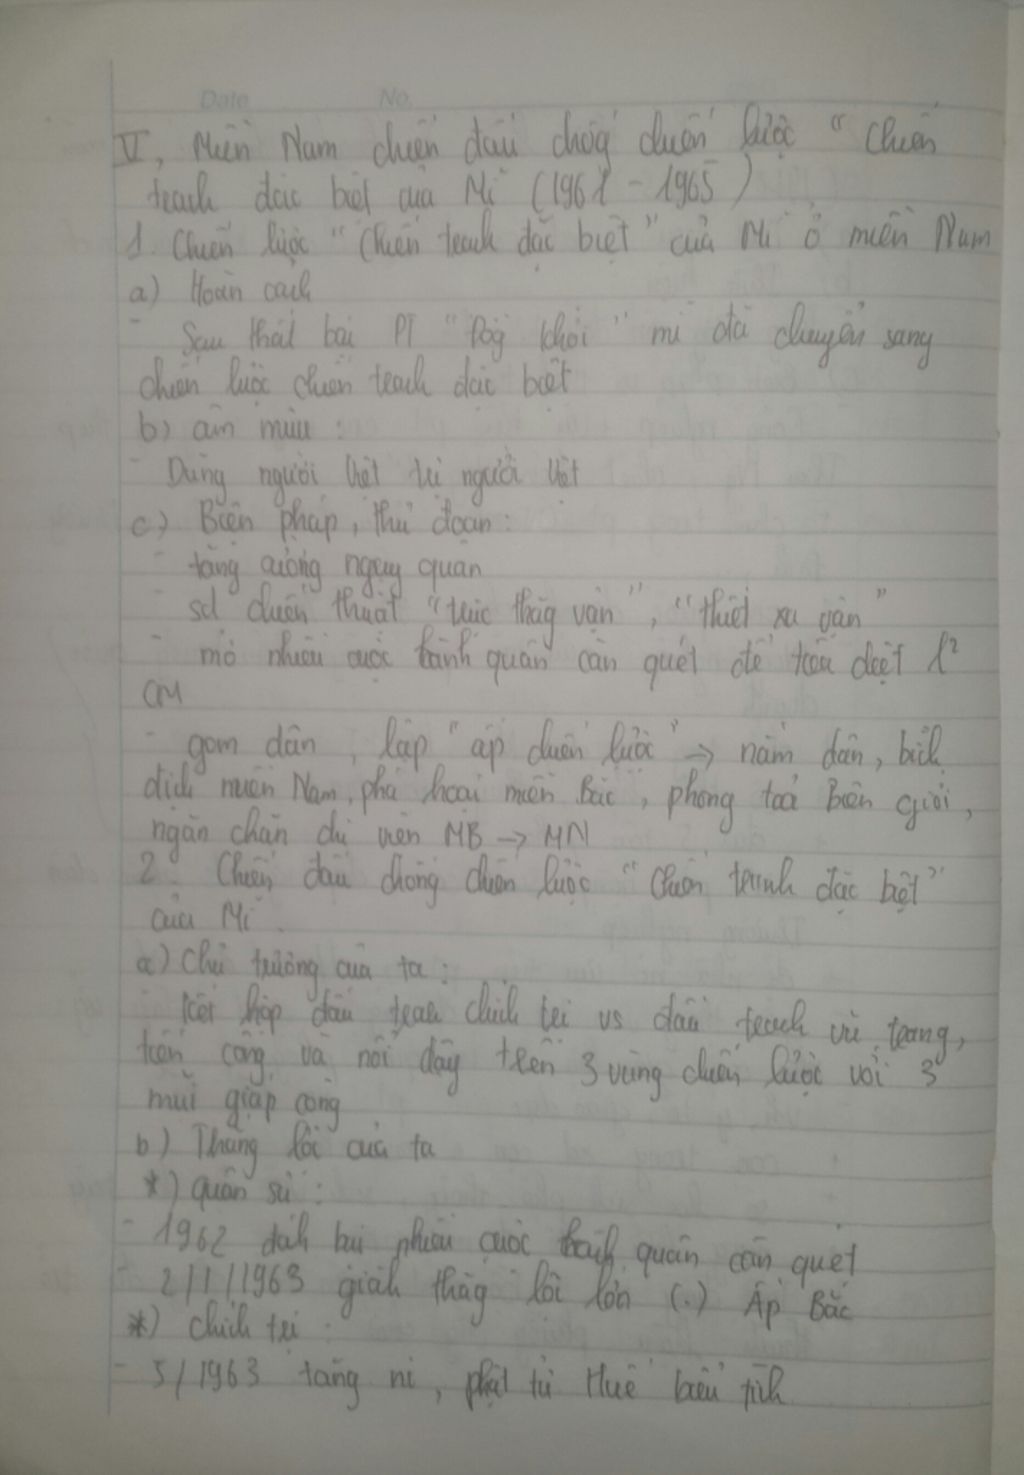 Date No.
V, Miền Nam chiến đấu chốg chiến lược " Chiến
tranh đặc biệt của Mĩ " (1961 - 1965)
1. Chiến lược " Chiến tranh đặc biệt " của Mĩ ở miền Nam
a) Hoàn cảnh
- Sau thất bại PT " Đồg khởi " mĩ đã chuyển sang
chiến lược chiến tranh đặc biệt
b) âm mưu :
- Dùng người Việt trị người Việt
c) Biện pháp, thủ đoạn :
- tăng cường ngụy quân
- sd chiến thuật " trực thăg vận ", " thiết xa vận "
- mở nhiều cuộc hành quân càn quét để tiêu diệt l²
CM
- gom dân, lập " ấp chiến lược " → nắm dân, bình
định miền Nam, phá hoại miền Bắc, phong toả Biên giới,
ngăn chặn chi viện MB → MN
2. Chiến đấu chống chiến lược " Chiến tranh đặc biệt "
của Mĩ.
a) Chủ trương của ta :
- Kết hợp đấu tranh chính trị vs đấu tranh vũ trang,
tiến công và nổi dậy trên 3 vùng chiến lược với 3
mũi giáp công
b) Thắng lợi của ta
*) Quân sự :
- 1962 đánh bại nhiều cuộc hành quân càn quét
- 2/1/1963 giành thắg lợi lớn (.) Ấp Bắc
*) chính trị :
- 5/1963 tăng ni, phật tử Huế biểu tình